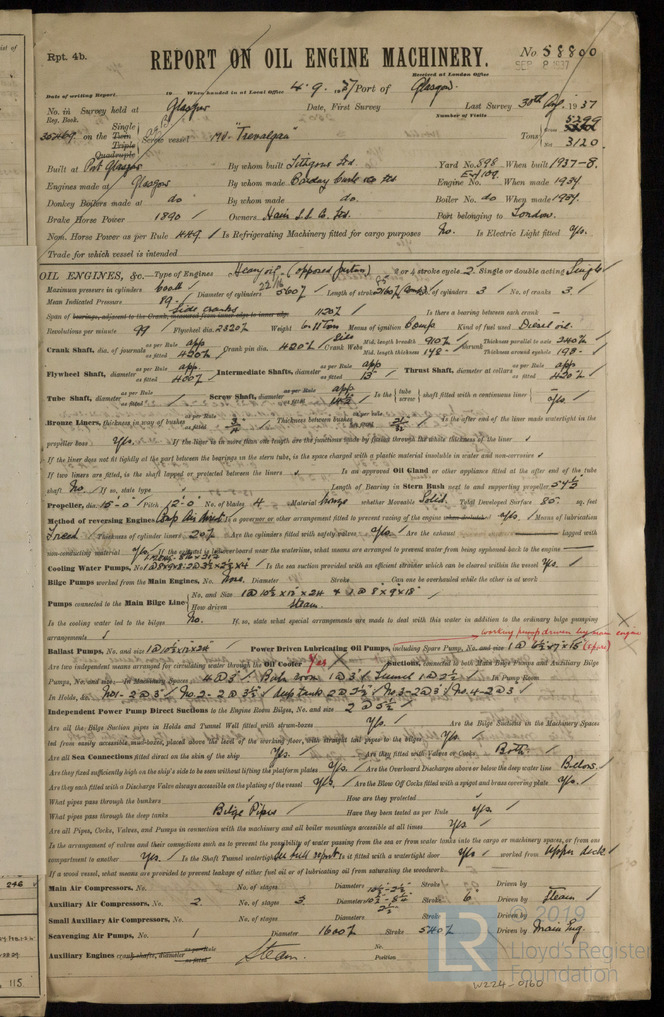 Rpt. 4b.
REPORT ON OIL ENGINE MACHINERY.
No. 58800
SEP 8 1937
Received at London Office
Date of writing Report 19 When handed in at Local Office 4.9.37 Port of Glasgow.
No. in Survey held at Glasgow Date, First Survey Last Survey 30th Aug 1937
Reg. Book. Number of Visits
30769 on the Single Twin Triple Quadruple Screw vessel "Trevalgan" Tons Gross 5299 Net 3120
Built at Port Glasgow By whom built Lithgows Ltd. Yard No. 898 When built 1937-8.
Engines made at Glasgow By whom made Barclay Curle & Co Ltd. Engine No. When made 1934.
Donkey Boilers made at do By whom made do. Boiler No. do When made 1934.
Brake Horse Power 1890 Owners Hain S.S. Co. Ltd. Port belonging to London.
Nom. Horse Power as per Rule 449 Is Refrigerating Machinery fitted for cargo purposes No. Is Electric Light fitted Yes.
Trade for which vessel is intended
OIL ENGINES, &c.—Type of Engines Heavy oil (opposed piston) 2 or 4 stroke cycle 2 Single or double acting Single
Maximum pressure in cylinders 600 lb Diameter of cylinders 560 Length of stroke No. of cylinders 3 No. of cranks 3.
Mean Indicated Pressure 89
Span of bearings, adjacent to the Crank, measured from inner edge to inner edge Side cranks 1120 Is there a bearing between each crank
Revolutions per minute 99 Flywheel dia. 2320 Weight Means of ignition Comp Kind of fuel used Diesel oil.
Crank Shaft, dia. of journals as per Rule app as fitted 420 Crank pin dia. 420 Crank Webs Mid. length breadth 910 Mid. length thickness Thickness parallel to axis 240 Thickness around eyehole 198
Flywheel Shaft, diameter as per Rule app. as fitted 400 Intermediate Shafts, diameter as per Rule app as fitted 13" Thrust Shaft, diameter at collars as per Rule app as fitted 420
Tube Shaft, diameter as per Rule as fitted Screw Shaft, diameter as per Rule app as fitted Is the tube screw shaft fitted with a continuous liner Yes.
Bronze Liners, thickness in way of bushes as per Rule as fitted 3/4 Thickness between bushes as per Rule as fitted 21/32 Is the after end of the liner made watertight in the
propeller boss Yes. If the liner is in more than one length are the junctions made by fusion through the whole thickness of the liner
If the liner does not fit tightly at the part between the bearings in the stern tube, is the space charged with a plastic material insoluble in water and non-corrosive
If two liners are fitted, is the shaft lapped or protected between the liners Is an approved Oil Gland or other appliance fitted at the after end of the tube
shaft No If so, state type Length of Bearing in Stern Bush next to and supporting propeller 54½
Propeller, dia. 15'-0" Pitch 12'-0" No. of blades 4 Material bronze whether Moveable Solid Total Developed Surface 80 sq. feet
Method of reversing Engines Comp Air direct Is a governor or other arrangement fitted to prevent racing of the engine when declutched Yes. Means of lubrication
Forced Thickness of cylinder liners 20 Are the cylinders fitted with safety valves Yes Are the exhaust lagged with
non-conducting material Yes If the exhaust is led overboard near the waterline, what means are arranged to prevent water from being syphoned back to the engine
Cooling Water Pumps, No. Is the sea suction provided with an efficient strainer which can be cleared within the vessel Yes.
Bilge Pumps worked from the Main Engines, No. None. Diameter Stroke Can one be overhauled while the other is at work
Pumps connected to the Main Bilge Line No. and Size 1 @ 10½ x 13 x 24 & 1 @ 8" x 9" x 18"
How driven Steam.
Is the cooling water led to the bilges No. If so, state what special arrangements are made to deal with this water in addition to the ordinary bilge pumping
arrangements
working pump driven by main engine
Ballast Pumps, No. and size 1 @ 10½ x 13 x 24 Power Driven Lubricating Oil Pumps, including Spare Pump, No. and size 1 @ 6½ x 7 x 15 (Spare)
Are two independent means arranged for circulating water through the Oil Cooler Yes Suctions, connected to both Main Bilge Pumps and Auxiliary Bilge
Pumps, No. and size:— In Machinery Spaces 4 @ 3" Tunnel 1 @ 2½ In Pump Room
In Holds, &c. No 1 - 2 @ 3" No 2 - 2 @ 3½ deep tank 2 @ 3½ No 3 - 2 @ 3" No 4 - 2 @ 3
Independent Power Pump Direct Suctions to the Engine Room Bilges, No. and size 2 @ 5½
Are all the Bilge Suction pipes in Holds and Tunnel Well fitted with strum-boxes Yes. Are the Bilge Suctions in the Machinery Spaces
led from easily accessible mud-boxes, placed above the level of the working floor, with straight tail pipes to the bilges Yes.
Are all Sea Connections fitted direct on the skin of the ship Yes. Are they fitted with Valves or Cocks Both
Are they fixed sufficiently high on the ship's side to be seen without lifting the platform plates Yes. Are the Overboard Discharges above or below the deep water line Below.
Are they each fitted with a Discharge Valve always accessible on the plating of the vessel Yes. Are the Blow Off Cocks fitted with a spigot and brass covering plate Yes.
What pipes pass through the bunkers How are they protected
What pipes pass through the deep tanks Bilge Pipes Have they been tested as per Rule Yes.
Are all Pipes, Cocks, Valves, and Pumps in connection with the machinery and all boiler mountings accessible at all times Yes.
Is the arrangement of valves and their connections such as to prevent the possibility of water passing from the sea or from water tanks into the cargo or machinery spaces, or from one
compartment to another Yes. Is the Shaft Tunnel watertight See hull report Is it fitted with a watertight door Yes worked from Upper deck.
If a wood vessel, what means are provided to prevent leakage of either fuel oil or of lubricating oil from saturating the woodwork
Main Air Compressors, No. No. of stages Diameters Stroke Driven by
Auxiliary Air Compressors, No. 2 No. of stages 3 Diameters Stroke 6" Driven by Steam
Small Auxiliary Air Compressors, No. No. of stages Diameters Stroke Driven by
Scavenging Air Pumps, No. 1 Diameter 1600 Stroke 540 Driven by Main Eng.
Auxiliary Engines crank shafts, diameter as per Rule as fitted Steam. No. Position
246
115
LR
2019
Lloyd's Register
Foundation
W224-0160